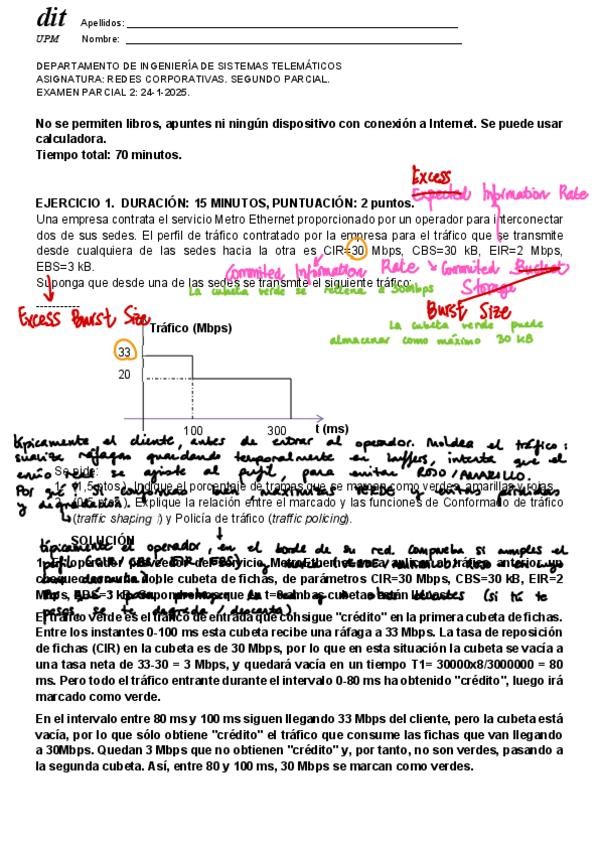 dit
UPM
Apellidos:
Nombre:
DEPARTAMENTO DE INGENIERÍA DE SISTEMAS TELEMÁTICOS
ASIGNATURA: REDES CORPORATIVAS. SEGUNDO PARCIAL.
EXAMEN PARCIAL 2: 24-1-2025.
No se permiten libros, apuntes ni ningún dispositivo con conexión a Internet. Se puede usar
calculadora.
Tiempo total: 70 minutos.
Excess
Expected Information Rate
EJERCICIO 1. DURACIÓN: 15 MINUTOS, PUNTUACIÓN: 2 puntos.
Una empresa contrata el servicio Metro Ethernet proporcionado por un operador para interconectar
dos de sus sedes. El perfil de tráfico contratado por la empresa para el tráfico que se transmite
desde cualquiera de las sedes hacia la otra es CIR=30 Mbps, CBS=30 kB, EIR=2 Mbps,
EBS=3 kB.
Commited Information Rate
Commited Bucket
Storage
Burst Size
Suponga que desde una de las sedes se transmite el siguiente tráfico:
La cubeta verde se rellena a 30Mbps
-----------
Excess Burst Size
La cubeta verde puede
almacenar como máximo 30 kB
Tráfico (Mbps)
33
20
100
300
t (ms)
típicamente el cliente, antes de entrar al operador. Moldea el tráfico:
suaviza ráfagas guardando temporalmente en buffers, intenta que el
envío real se ajuste al perfil, para evitar ROJO/AMARILLO.
Se pide:
Por qué? si conformas bien, maximizas VERDE y evitas pérdidas
y degradación.
1. (1,5 ptos.) Indique el porcentaje de tramas que se marcan como verdes, amarillas y rojas.
2. (0,5 ptos.) Explique la relación entre el marcado y las funciones de Conformado de tráfico
(traffic shaping) y Policía de tráfico (traffic policing).
SOLUCIÓN
típicamente el operador, en el borde de su red. Comprueba si cumples el
perfil
1. El operador proveedor del servicio Metro Ethernet
doble cubeta de fichas, de parámetros CIR=30 Mbps, CBS=30 kB, EIR=2
Mbps, EBS=3 kB.
(si tú te
pasas, se te degrada/descarta).
El tráfico verde es el tráfico de entrada que consigue "crédito" en la primera cubeta de fichas.
Entre los instantes 0-100 ms esta cubeta recibe una ráfaga a 33 Mbps. La tasa de reposición
de fichas (CIR) en la cubeta es de 30 Mbps, por lo que en esta situación la cubeta se vacía a
una tasa neta de 33-30 = 3 Mbps, y quedará vacía en un tiempo T1= 30000x8/3000000 = 80
ms. Pero todo el tráfico entrante durante el intervalo 0-80 ms ha obtenido "crédito", luego irá
marcado como verde.
En el intervalo entre 80 ms y 100 ms siguen llegando 33 Mbps del cliente, pero la cubeta está
vacía, por lo que sólo obtiene "crédito" el tráfico que consume las fichas que van llegando
a 30Mbps. Quedan 3 Mbps que no obtienen "crédito" y, por tanto, no son verdes, pasando a
la segunda cubeta. Así, entre 80 y 100 ms, 30 Mbps se marcan como verdes.